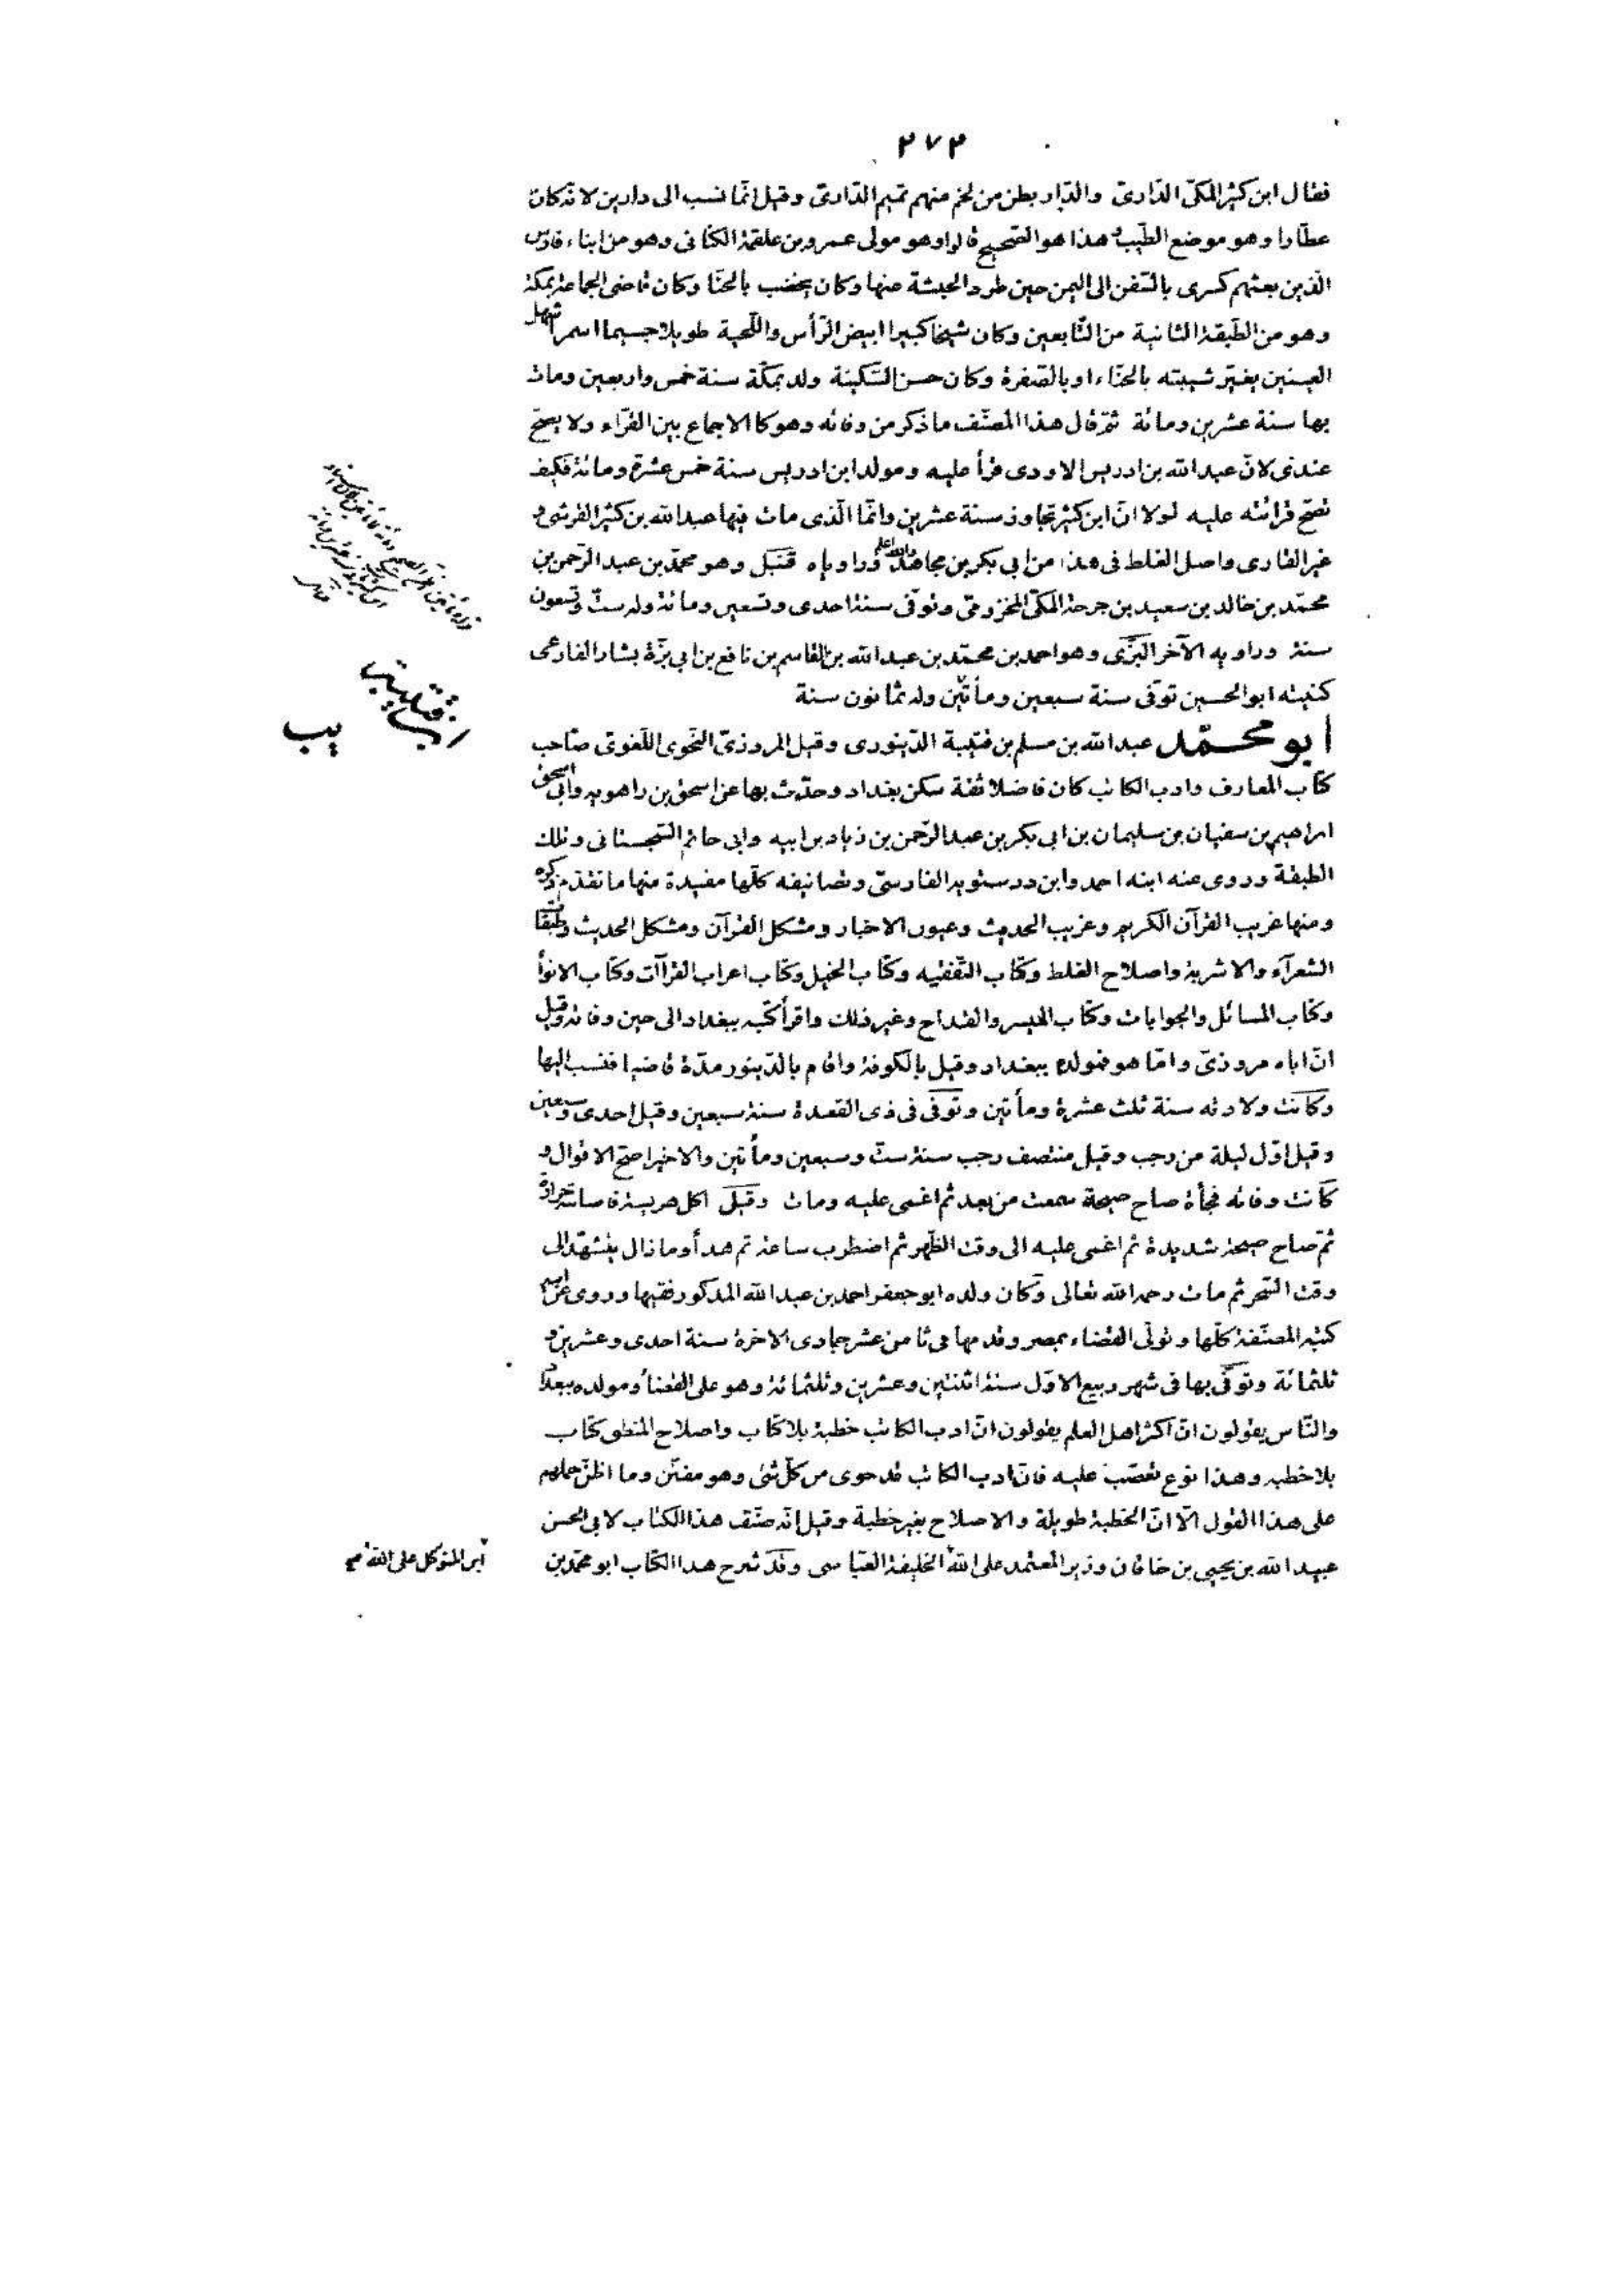 ٢٧٣
فقال ابن كثير المكّىّ الدّارىّ والدّار بطن من لخم منهم تميم الدّارىّ وقيل انّما نسب الى دارين لانّه كان
عطّارا وهو موضع الطّيب وهذا هو الصّحيح قالوا وهو مولى عمرو بن علقمة الكنانى وهو من ابناء فارس
الّذين بعثهم كسرى بالسّفن الى اليمن حين طرد الحبشة عنها وكان يخضب بالحنّا وكان قاضى الجماعة بمكة
وهو من الطّبقة الثانية من التّابعين وكان شيخا كبيرا ابيض الرّأس واللّحية طويلا جسيما اسمر اشهل
العينين يغيّر شيبته بالحنّاء او بالصّفرة وكان حسن السّكينة ولد بمكّة سنة خمس واربعين ومات
بها سنة عشرين ومائة ثمّ قال هذا المصنّف ما ذكر من وفاته وهو كالاجماع بين القرّاء ولا يصحّ
عندى لانّ عبد الله بن ادريس الاودى قرأ عليه ومولد ابن ادريس سنة خمس عشرة ومائة فكيف
تصحّ قرائته عليه لولا انّ ابن كثير تجاوز سنة عشرين وانّما الّذى مات فيها عبد الله بن كثير القرشى و
غير القارى واصل الغلط فى هذا من ابى بكر بن مجاهد والله اعلم وراوياه قنبل وهو محمّد بن عبد الرّحمن بن
محمّد بن خالد بن سعيد بن جرجة المكّى المخزومى وتوفّى سنة احدى وتسعين ومائة وله ستّ وتسعون
سنة وراويه الآخر البزّى وهو احمد بن محمّد بن عبد الله بن القاسم بن نافع بن ابى بزّة بشار الفارعى
كنيته ابو الحسين توفّى سنة سبعين ومأتين وله ثمانون سنة
ابن قتيبة
يب
أبو محمّد عبد الله بن مسلم بن قتيبة الدّينورى وقيل المروزىّ النّحوى اللّغوىّ صاحب
كتاب المعارف وادب الكاتب كان فاضلا ثقة سكن بغداد وحدّث بها عن اسحق بن راهويه وابى اسحق
ابراهيم بن سفيان بن سليمان بن ابى بكر بن عبد الرّحمن بن زياد بن ابيه وابى حاتم السّجستانى وتلك
الطبقة وروى عنه ابنه احمد وابن درستويه الفارسىّ وتصانيفه كلّها مفيدة منها ما تقدّم ذكره
ومنها غريب القرآن الكريم وغريب الحديث وعيون الاخبار ومشكل القرآن ومشكل الحديث وطبقات
الشعرآء والاشربة واصلاح الغلط وكتاب التّفقيه وكتاب الخيل وكتاب اعراب القرآت وكتاب الانوأ
وكتاب المسائل والجوابات وكتاب الميسر والقداح وغير ذلك واقرأ كتبه ببغداد الى حين وفاته وقيل
انّ اباه مروزىّ وامّا هو فمولده ببغداد وقيل بالكوفة واقام بالدّينور مدّة قاضيا فنسب اليها
وكانت ولادته سنة ثلث عشرة ومأتين وتوفّى فى ذى القعدة سنة سبعين وقيل احدى وسبعين
وقيل اوّل ليلة من رجب وقيل منتصف رجب سنة ستّ وسبعين ومأتين والاخير اصحّ الاقوال و
كانت وفاته فجأة صاح صيحة سمعت من بعد ثم اغمى عليه ومات وقيل اكل هريسة فاصابته حرارة
ثمّ صاح صيحة شديدة ثم اغمى عليه الى وقت الظّهر ثم اضطرب ساعة ثم هدأ وما زال يتشهّد الى
وقت السّحر ثم مات رحمه الله تعالى وكان ولده ابو جعفر احمد بن عبد الله المذكور فقيها وروى عن ابيه
كتبه المصنّفة كلّها وتولّى القضاء بمصر وقدمها فى ثامن عشر جمادى الاخرة سنة احدى وعشرين و
ثلثمائة وتوفّى بها فى شهر ربيع الاوّل سنة اثنتين وعشرين وثلثمائة وهو على القضأ ومولده ببغداد
والنّاس يقولون انّ اكثر اهل العلم يقولون انّ ادب الكاتب خطبة بلا كتاب واصلاح المنطق كتاب
بلا خطبه وهذا نوع تعصّب عليه فانّ ادب الكاتب قد حوى من كلّ شئ وهو مفنّن وما اظنّ حملهم
على هذا القول الّا انّ الخطبة طويلة والاصلاح بغير خطبة وقيل انّه صنّف هذا الكتاب لابى الحسن
عبيد الله بن يحيى بن خاقان وزير المعتمد على الله الخليفة العبّاسى وقد شرح هذا الكتاب ابو محمّد بن
ابن المتوكل على الله صح